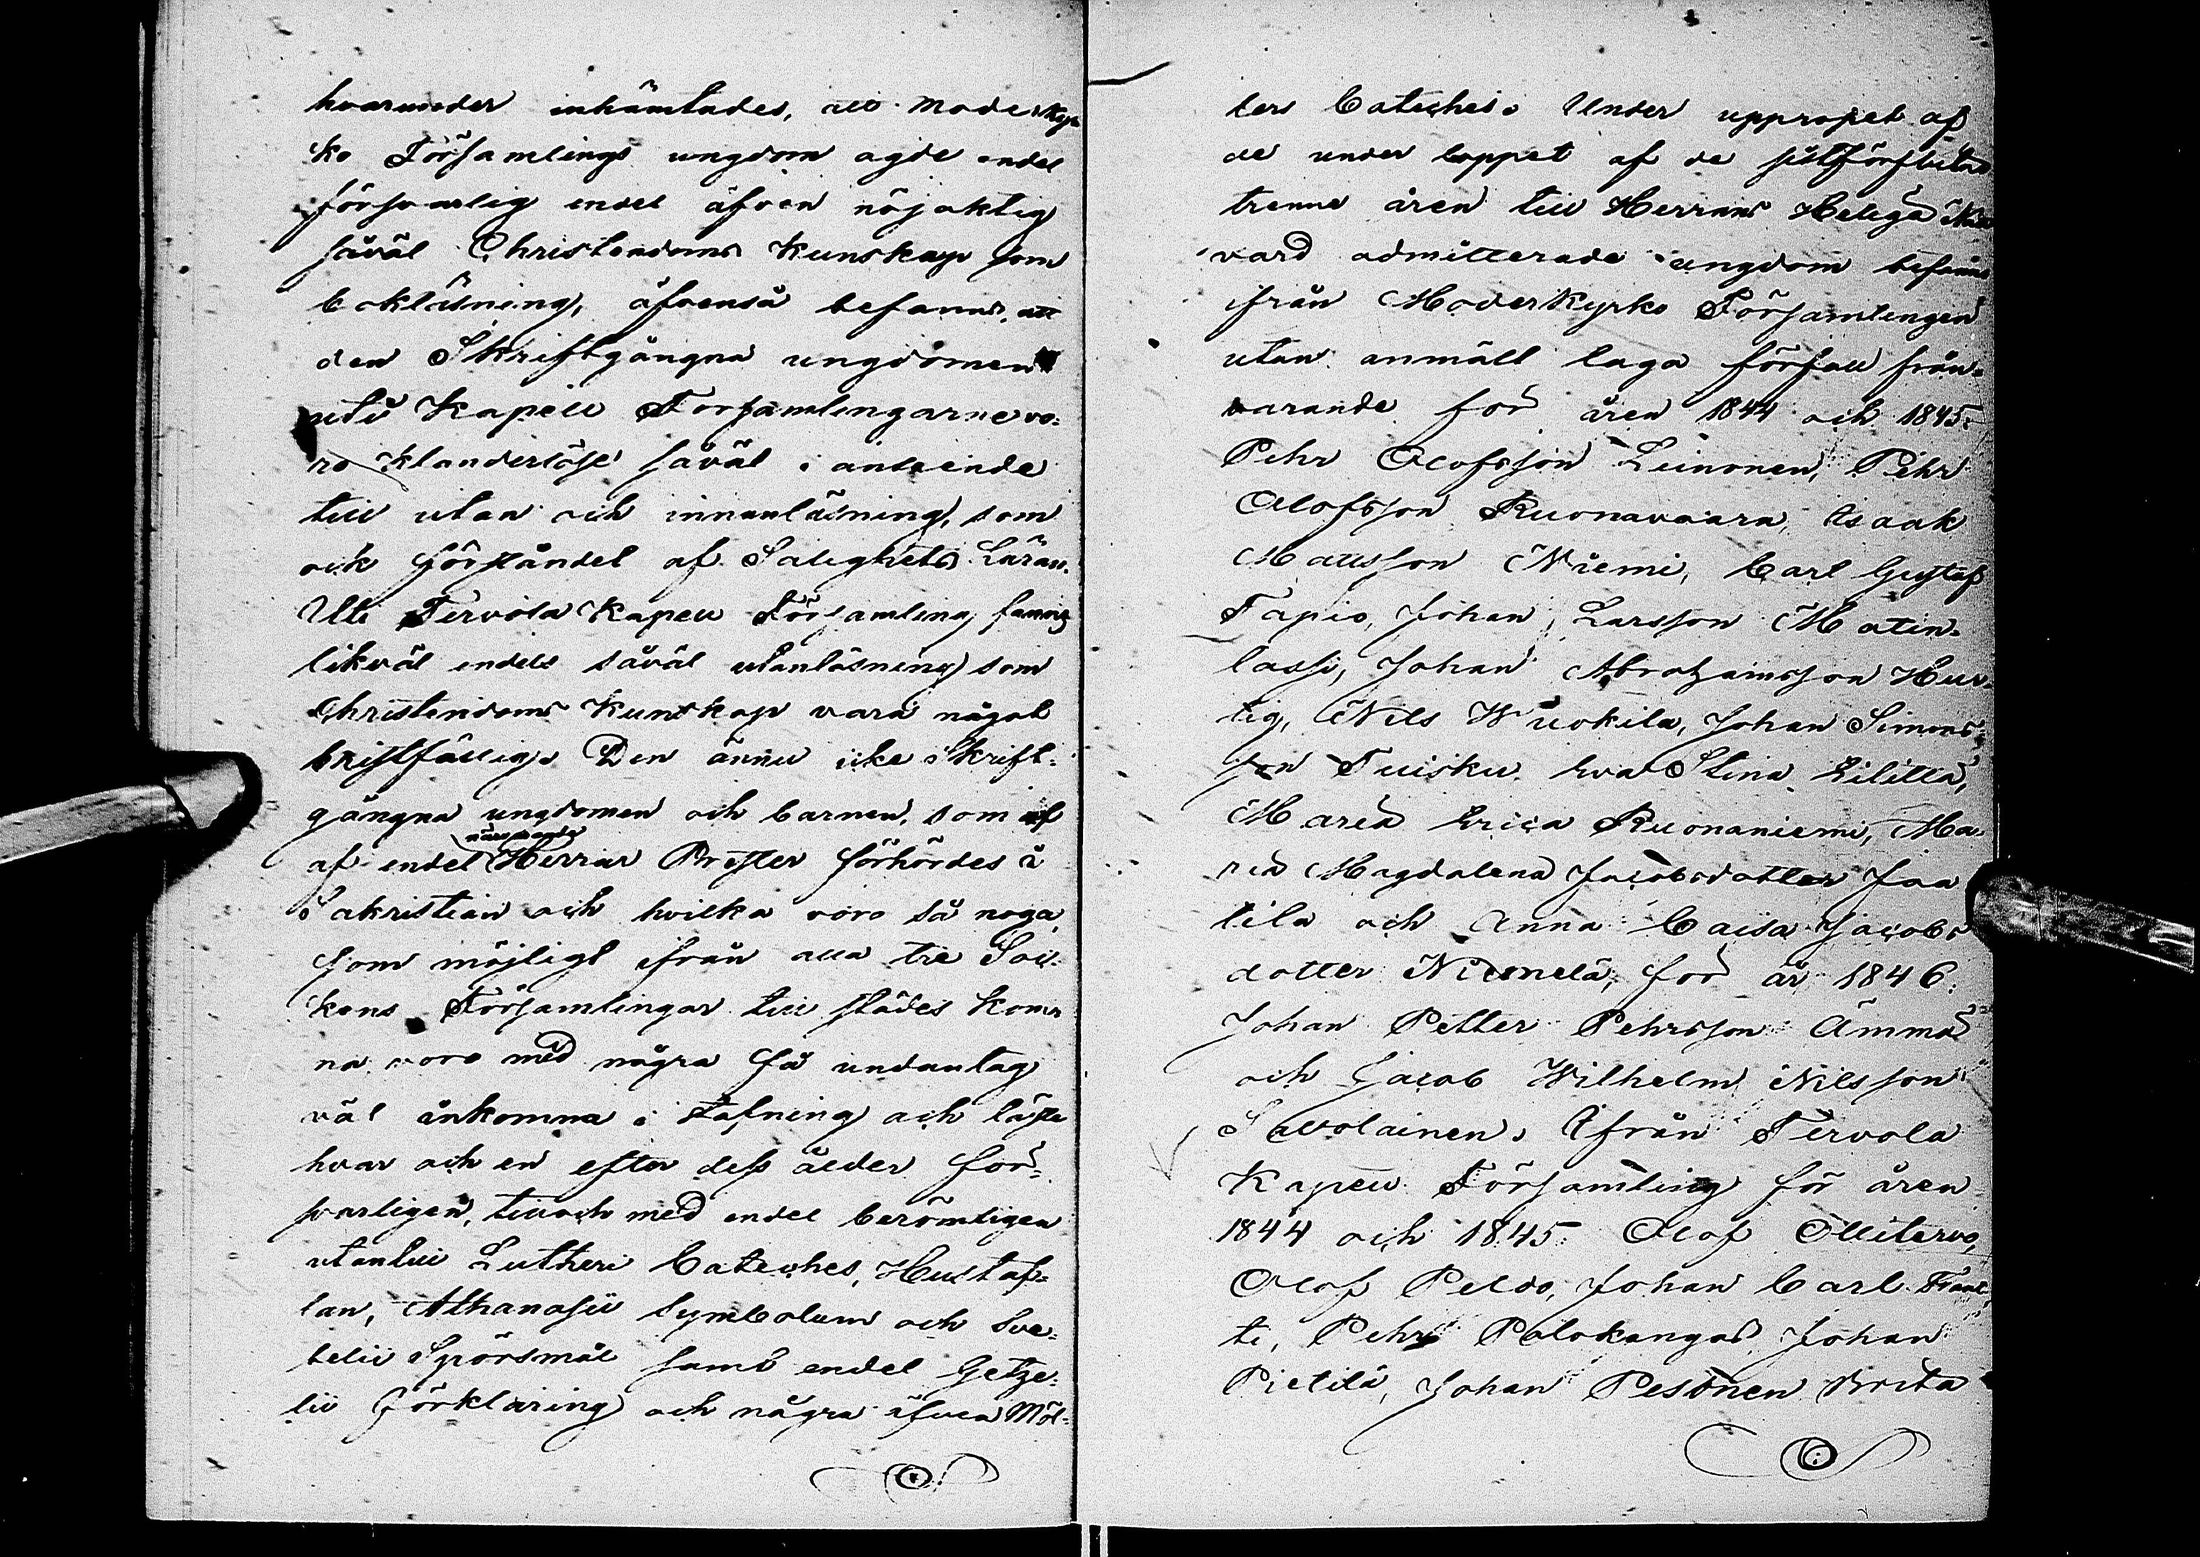 hvarunder inhämtades, att Moderkyr
ko Församlings ungdom ägde endel
försvarlig endel äfven nöjaktig
såväl Christendoms Kunskap som
bokläsning, äfvenså befanns, att
den Skriftgångna ungdomen
uti Kapell Församlingarne vo-
ro klanderlöse såväl i anseende
till utan och innanläsning, som
ock förståndet af Salighets Läran.
Uti Tervola Kapell Församling fanns
likväl endels såväl utanläsning som
Christendoms Kunskap vara något
bristfällig. Den ännu icke Skrift-
gångna ungdomen och barnen, som
af endel närvarande Herrar Prester förhördes i
Sakristian och hvilka voro så noga
som möjligt ifrån alla tre Soc-
kens Församlingar till städes kom-
na voro med några få undantag
väl ankomna i stafning och läste
hvar och en efter dess ålder för-
svarligen, till och med endel berömligen
utantill Lutheri Cateches, Hustaf-
lan, Athanasii Symbolum och Sve-
belii Spörsmål samt endel Getze-
lii Förklaring och några äfven Möl-
lers Cateches. Under uppropet af
de under loppet af de sistförflutne
trenne åren till Herrans Heliga Natt
vard admitterade ungdom befanns
ifrån Moderkyrko Församlingen
utan anmält laga förfall från-
varande för åren 1844 och 1845.
Pehr Olofsson Leinonen, Pehr
Olofsson Ruonavaara, Isaak
Mattsson Niemi, Carl Gustaf
Tapio, Johan Larsson Matin-
lassi, Johan Abrahamsson Hur-
tig, Nils Wuokila, Johan Simons-
son Tuisku. Eva Stina Eilittä,
Maria Erica Ruonaniemi, Ma-
ria Magdalena Jacobsdotter Jaa
tila och Anna Caisa Jacobs
dotter Niemelä, för år 1846.
Johan Petter Pehrsson Ämmä
och Jacob Wilhelm Nilsson
Savolainen. Ifrån Tervola
Kapell Församling för åren
1844 och 1845. Olof Ollitervo,
Olof Peldo, Johan Carl
ti, Pehr Palokangas Johan
Pietilä, Johan Pesonen Brita